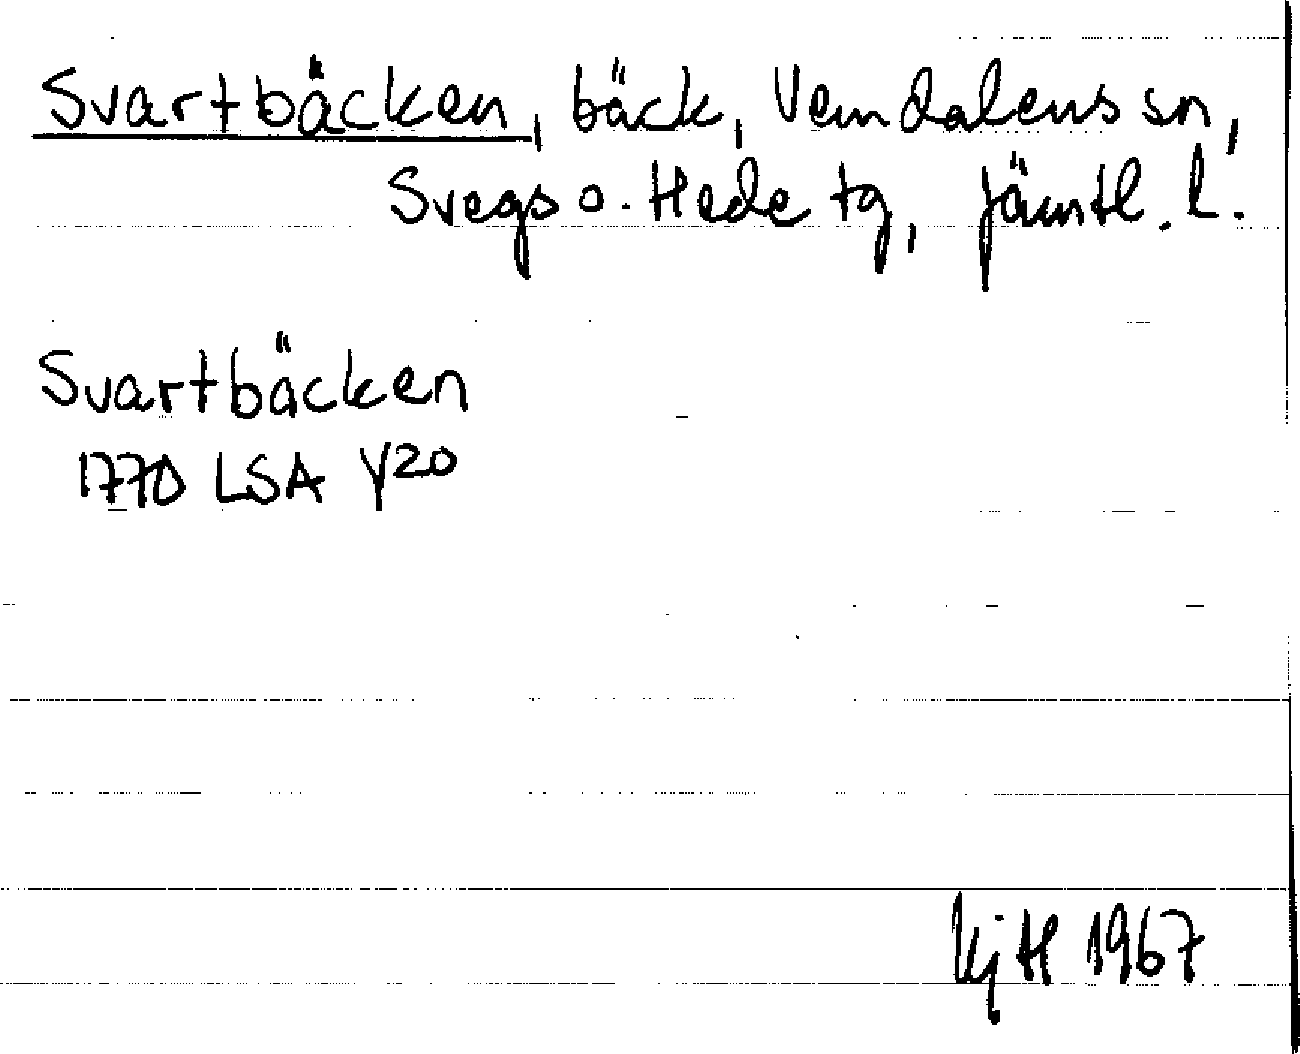 Svartbäcken, bäck, Vemdalens sn,
Svegs o. Hede tg, Jämtl. l.
Svartbäcken
1770 LSA Y20
KjH 1967